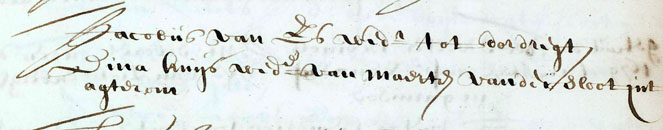 Jacobus van Es wedr tot dordregt
Dina kuijs wede van maerten vander sloot int
agterom